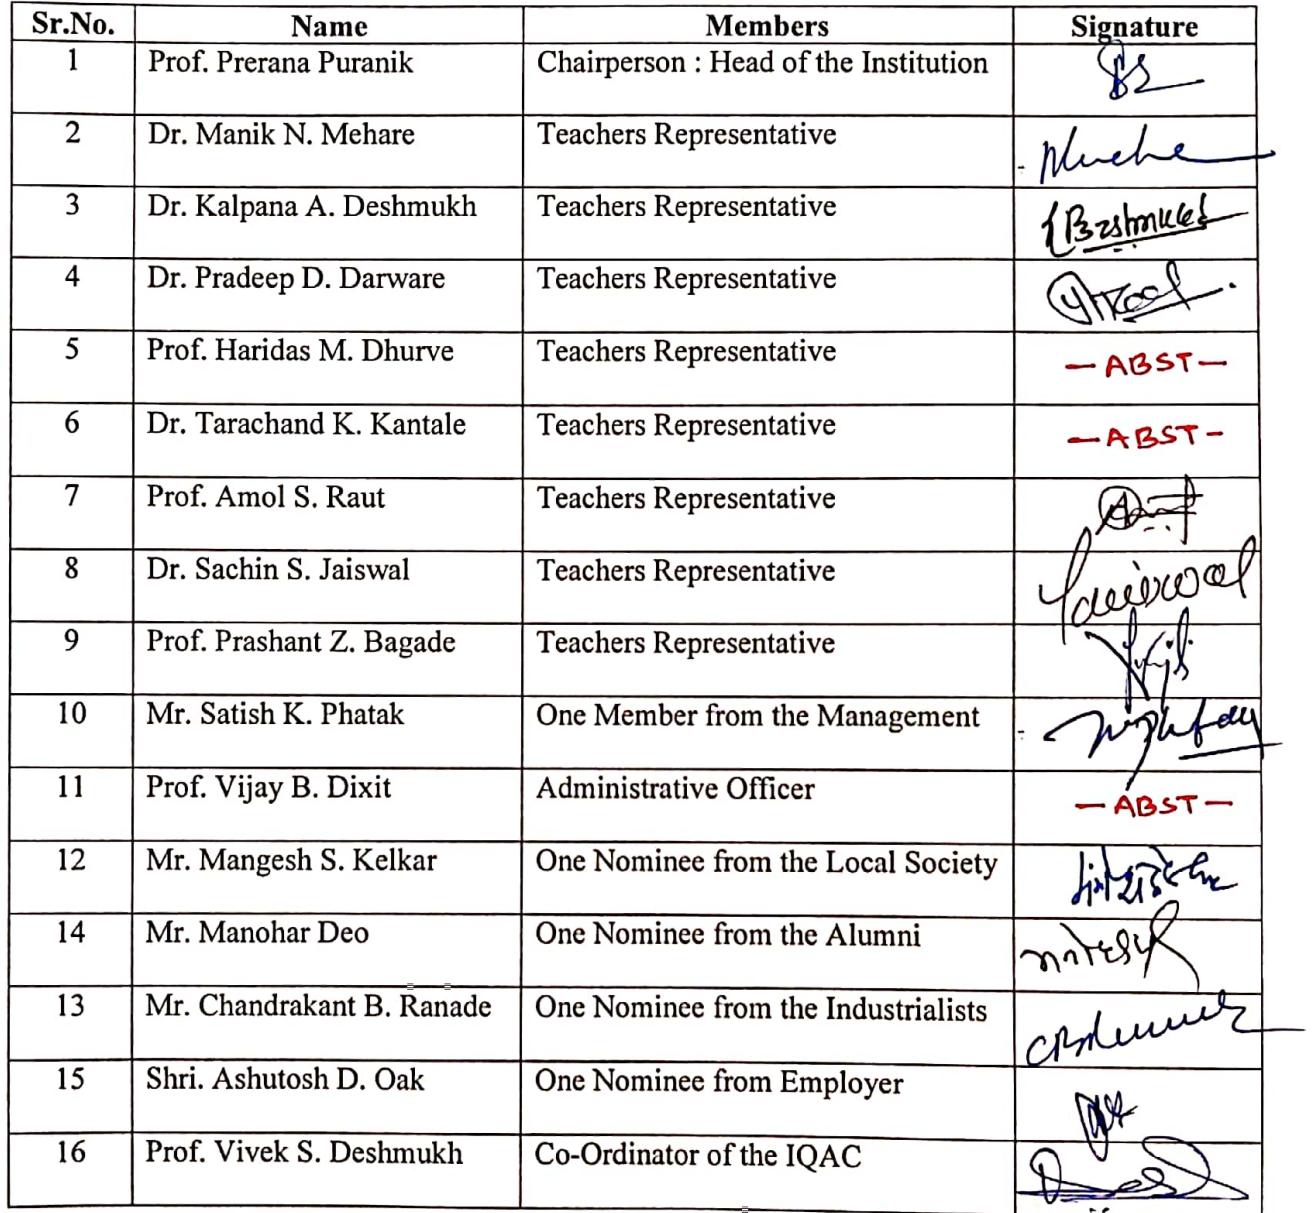 Sr.No. Name Members Signature
1 Prof. Prerana Puranik Chairperson : Head of the Institution
2 Dr. Manik N. Mehare Teachers Representative
3 Dr. Kalpana A. Deshmukh Teachers Representative
4 Dr. Pradeep D. Darware Teachers Representative
5 Prof. Haridas M. Dhurve Teachers Representative — ABST —
6 Dr. Tarachand K. Kantale Teachers Representative — ABST —
7 Prof. Amol S. Raut Teachers Representative
8 Dr. Sachin S. Jaiswal Teachers Representative
9 Prof. Prashant Z. Bagade Teachers Representative
10 Mr. Satish K. Phatak One Member from the Management
11 Prof. Vijay B. Dixit Administrative Officer — ABST —
12 Mr. Mangesh S. Kelkar One Nominee from the Local Society
14 Mr. Manohar Deo One Nominee from the Alumni
13 Mr. Chandrakant B. Ranade One Nominee from the Industrialists
15 Shri. Ashutosh D. Oak One Nominee from Employer
16 Prof. Vivek S. Deshmukh Co-Ordinator of the IQAC